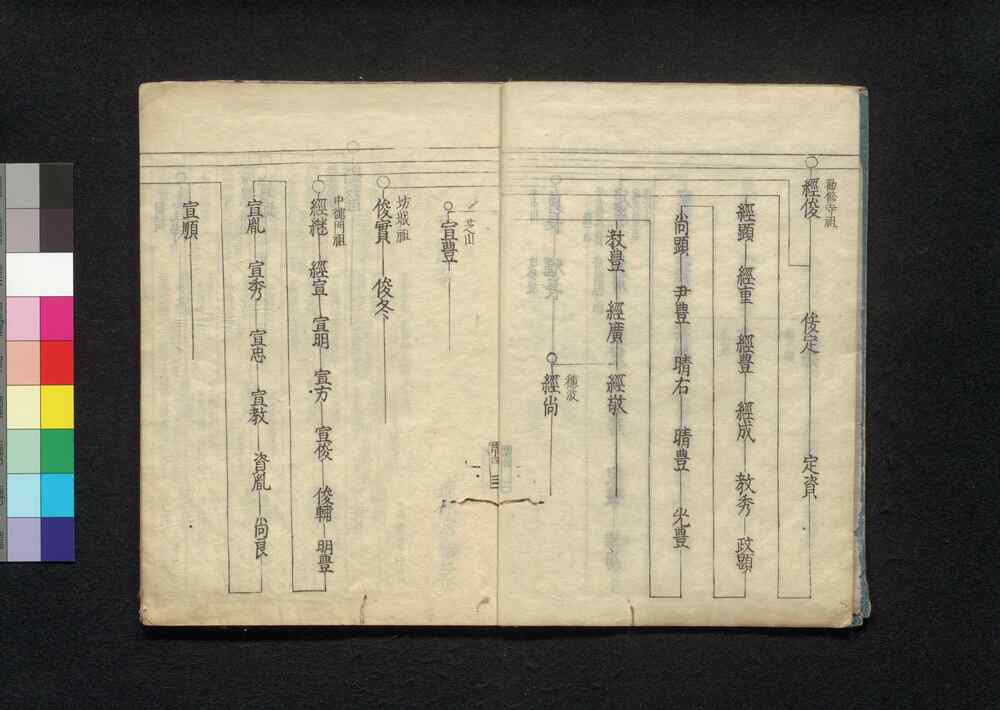 勸修寺祖
經俊 俊定 定資
經顯 經重 經豊 經成 教秀 政顯
尚顯 尹豊 晴右 晴豊 光豊
教豊 經廣 經敬
穂波
經尚
芝山
宣豊
坊城祖
俊實 俊冬
中御門祖
經継 經宣 宣明 宣方 宣俊 俊輔 明豊
宣胤 宣秀 宣忠 宣教 資胤 尚良
宣順